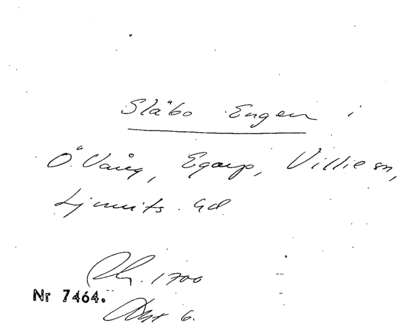 Släbo Engen i
Ö. Vång, Egarp, Villie sn,
Ljunits hd.
1700
Nr 7464.
Akt 6.